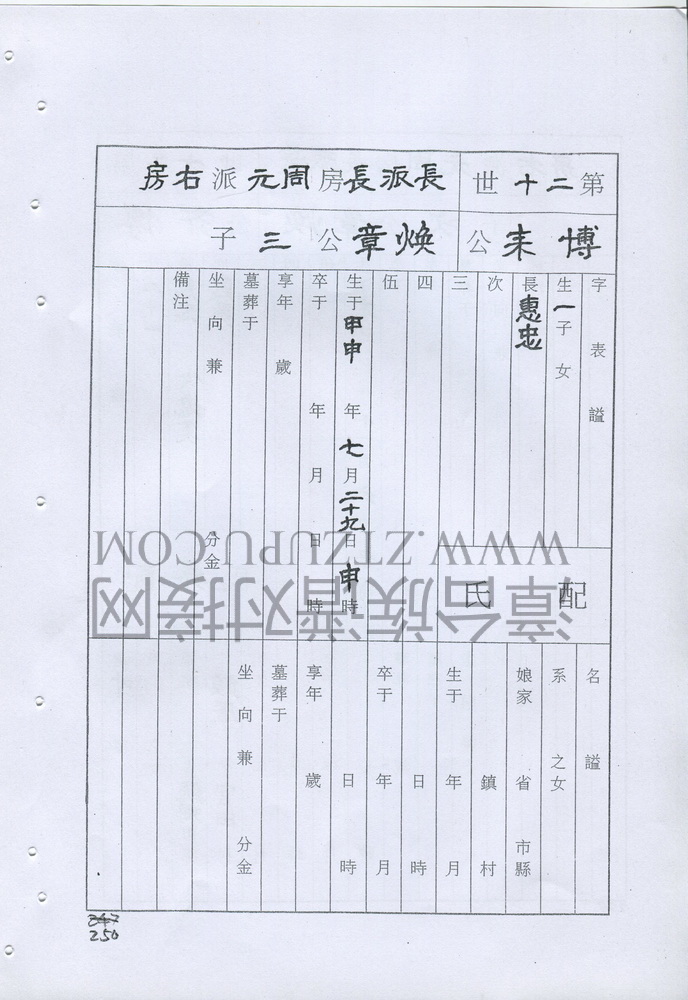 第二十世
長派長房周元派右房
博耒公
焕章公三子
字表謚
生一子女
長惠忠
次
三
四
伍
生于甲申年七月二十九日申時
卒于年月日時
享年歲
墓葬于
坐向兼分金
備注
配氏
名謚
系之女
娘家省市縣
鎮村
生于年月
日時
卒于年月
日時
享年歲
墓葬于
坐向兼分金
WWW.ZTZUPU.COM
漳台族谱对接网
247
250